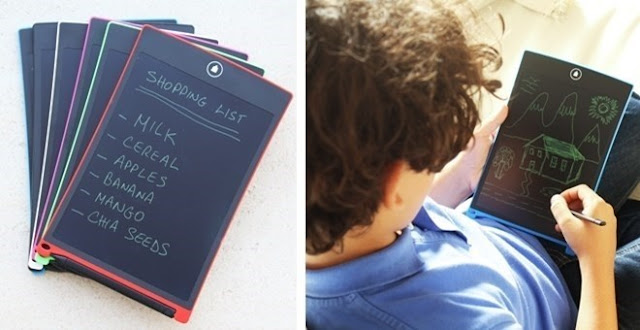 SHOPPING LIST
- MILK
- CEREAL
- APPLES
- BANANA
- MANGO
- CHIA SEEDS